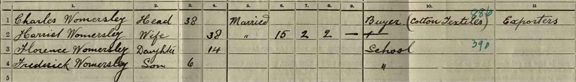 1. 2. 3. 4. 5. 6. 7. 8. 9. 10. 11.
1 Charles Womersley Head 38 Married Buyer (Cotton Textiles) 886 Exporters
2 Harriet Womersley Wife 38 " 15 2 2 —
3 Florence Womersley Daughter 14 School 390
4 Frederick Womersley Son 6 "
5